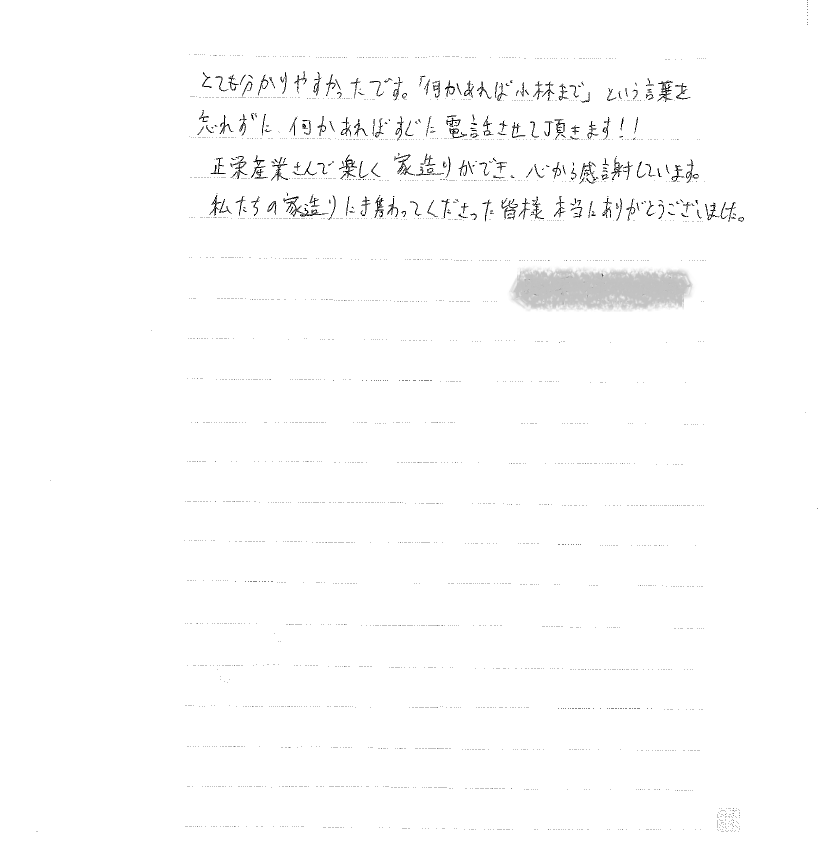 とても分かりやすかったです。「何かあれば小林まで」という言葉を
忘れずに、何かあればすぐに電話させて頂きます!!
正栄産業さんで楽しく家造りができ、心から感謝しています。
私たちの家造りに携わってくださった皆様本当にありがとうございました。